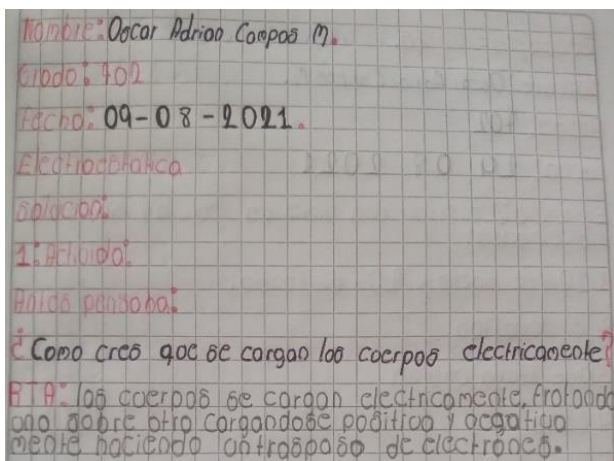 Nombre: Oscar Adrian Campos M.
Grado: 902
Fecha: 09-08-2021.
Electrostatica
Solucion:
1: Actividad:
Antes pensaba:
¿Como cres que se cargan los cuerpos electricamente?
RTA: los cuerpos se cargan electricamente, frotando
uno sobre otro cargandose positiva y negativa
mente haciendo un traspaso de electrones.